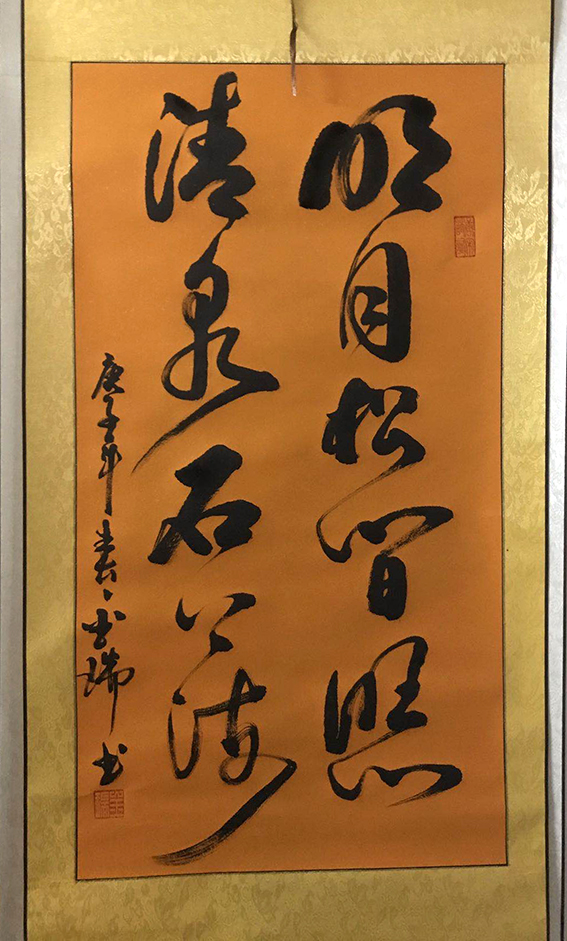 明月松间照
清泉石上流
庚子年春瑞书